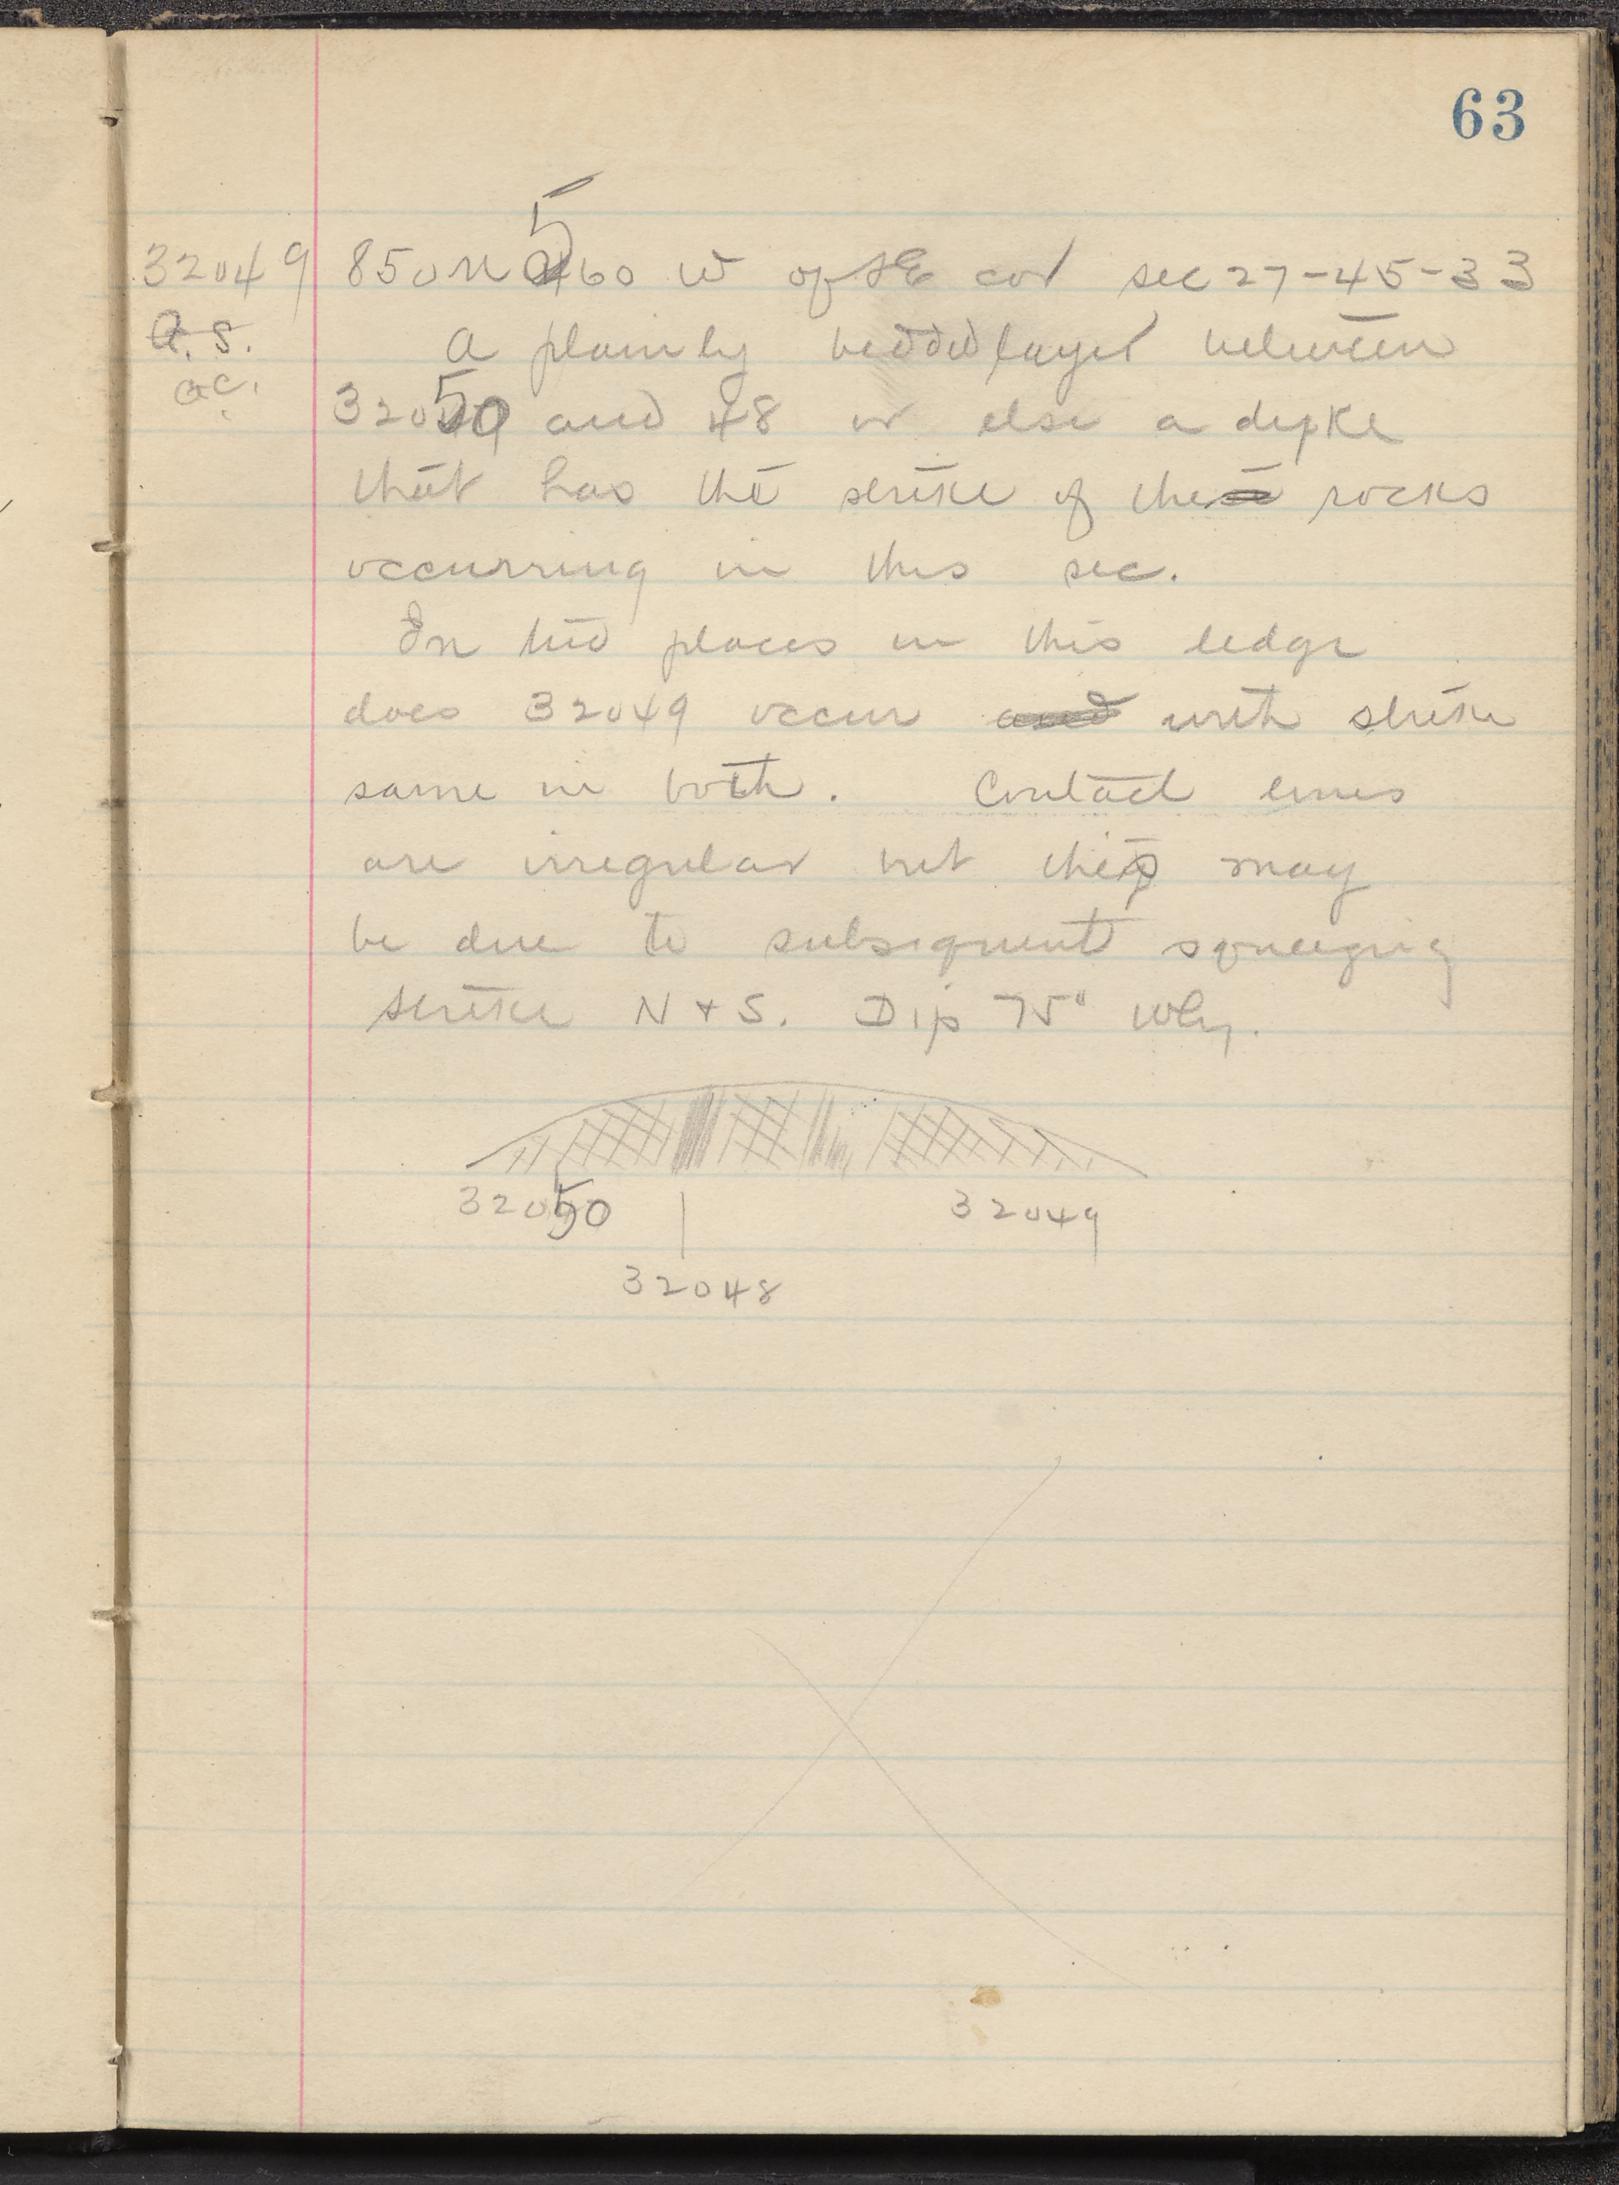 63
32049 850 N 560 W of SE cor sec 27-45-33
A. S. A plainly bedded layer between
a.c. 32050 and 48 or else a dyke
that has the strike of the rocks
occurring in this sec.
In two places in this ledge
does 32049 occur and with strike
same in both. Contact lines
are irregular but this may
be due to subsequent squeezing
Strike N + S. Dip 75° Wly.
32050 32049
32048